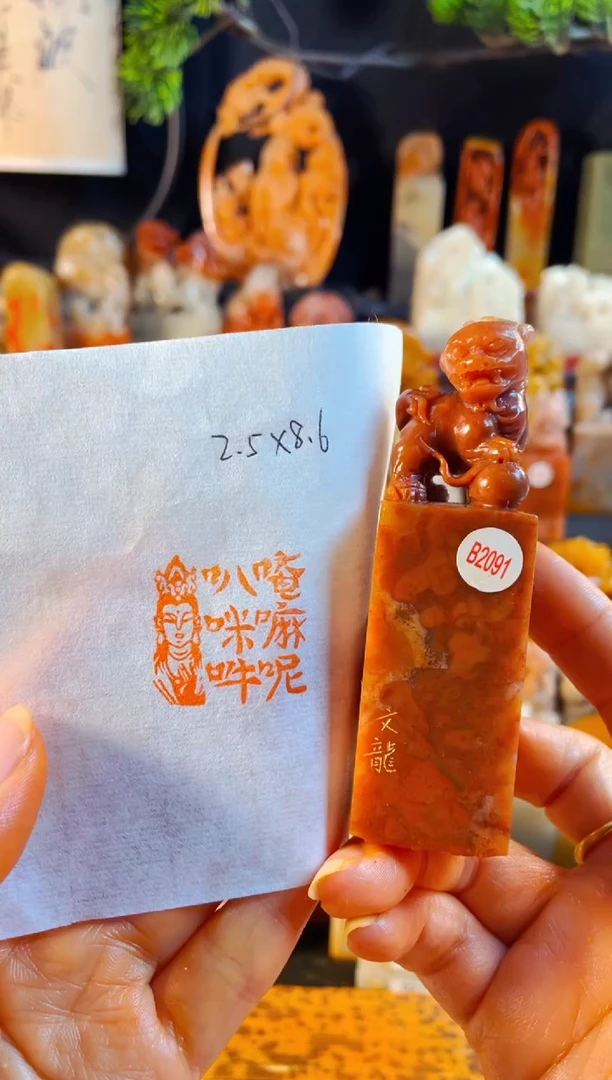 2.5×8.6
唵嘛呢
叭咪吽
B2091
文龍